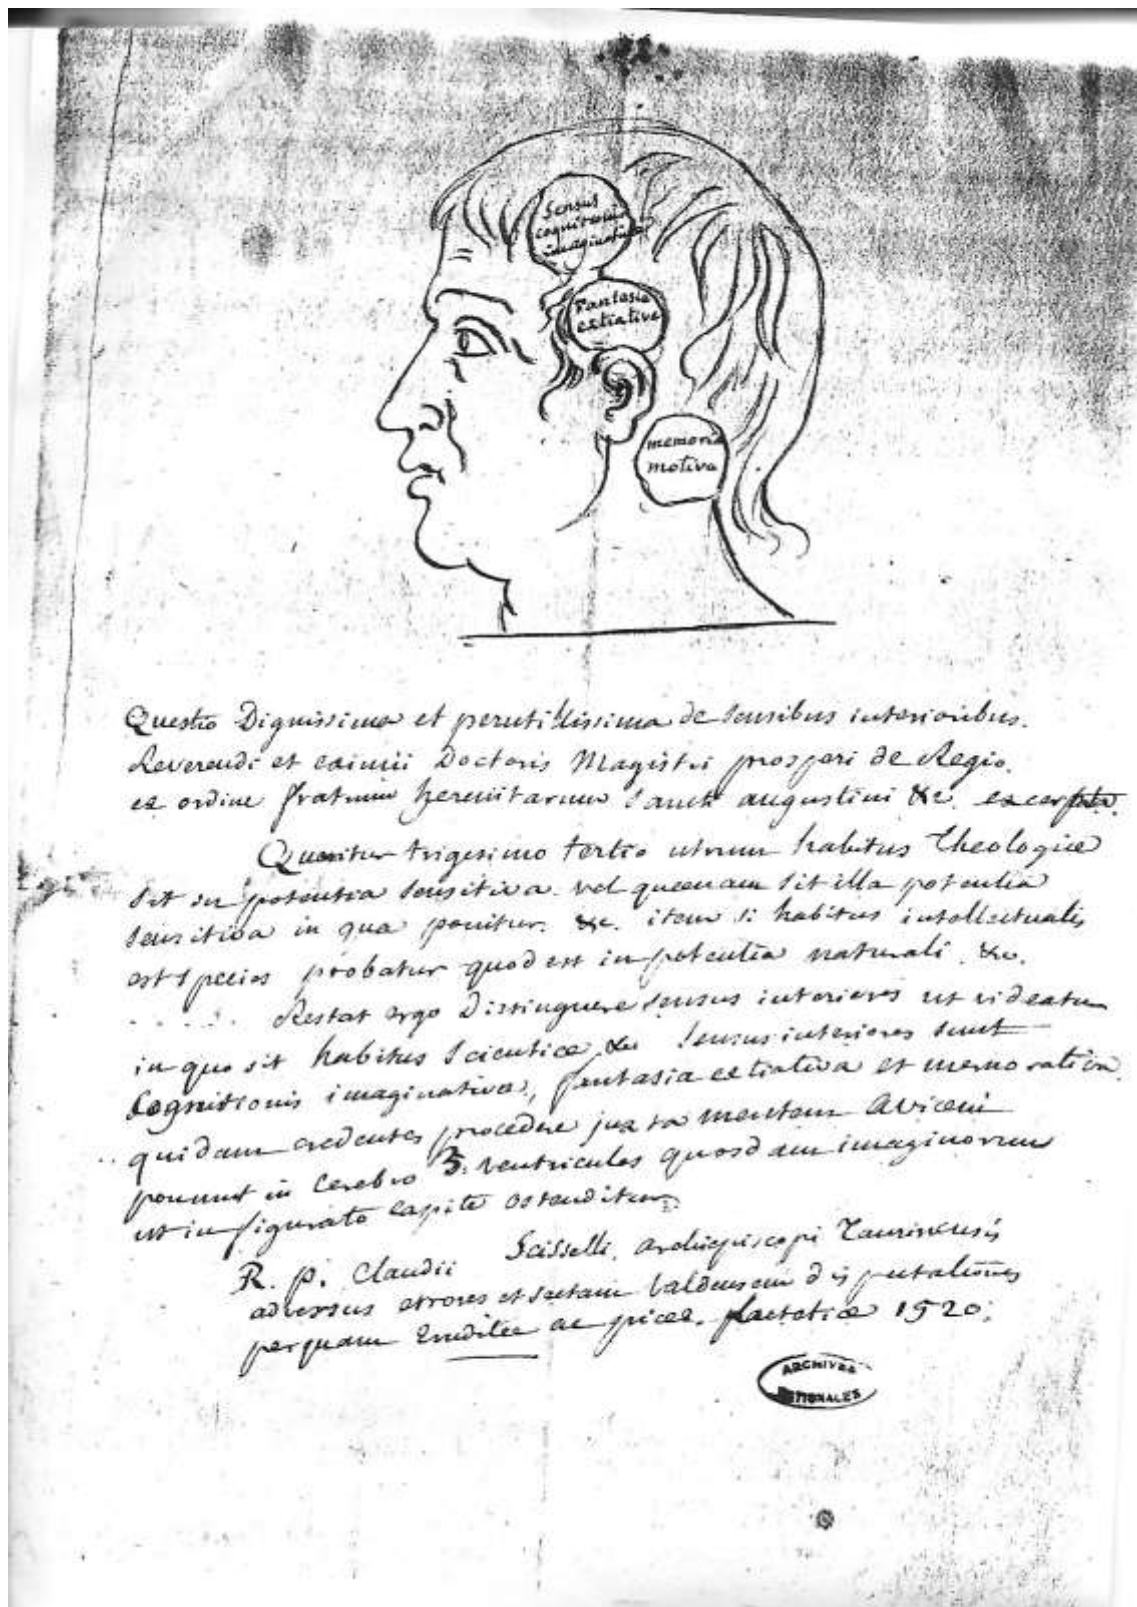 Sensus
cognitionis
imaginativa
Fantasia
extiativa
memoria
motiva
Questio Dignissima et perutilissima de sensibus interioribus.
Reverendi et eximii Doctoris Magistri prosperi de Regio.
ex ordine fratrum heremitarum Sancti augustini &c. excerpta.
Queritur trigesimo tertio utrum habitus Theologiæ
sit in potentia sensitiva vel quænam sit illa potentia
sensitiva in qua ponitur. &c. item si habitus intellectualis
est species probatur quod est in potentia naturali. &c.
..... Restat ergo Distinguere sensus interiores ut videatur
in quo sit habitus scientiæ &c sensus interiores sunt
Cognitionis imaginativa, fantasia extiativa et memorativa.
.. quidam credentes procedere juxta mentem Aviceni
ponunt in Cerebro 3. ventriculos quosdam imaginorum
ut in figurato capite ostenditur.
R. p. Claudii Scisselli, archiepiscopi Taurinensis
adversus errores et sectam Valdensem disputationes
perquam Eruditæ ac piæ. 1520.
ARCHIVES
NATIONALES